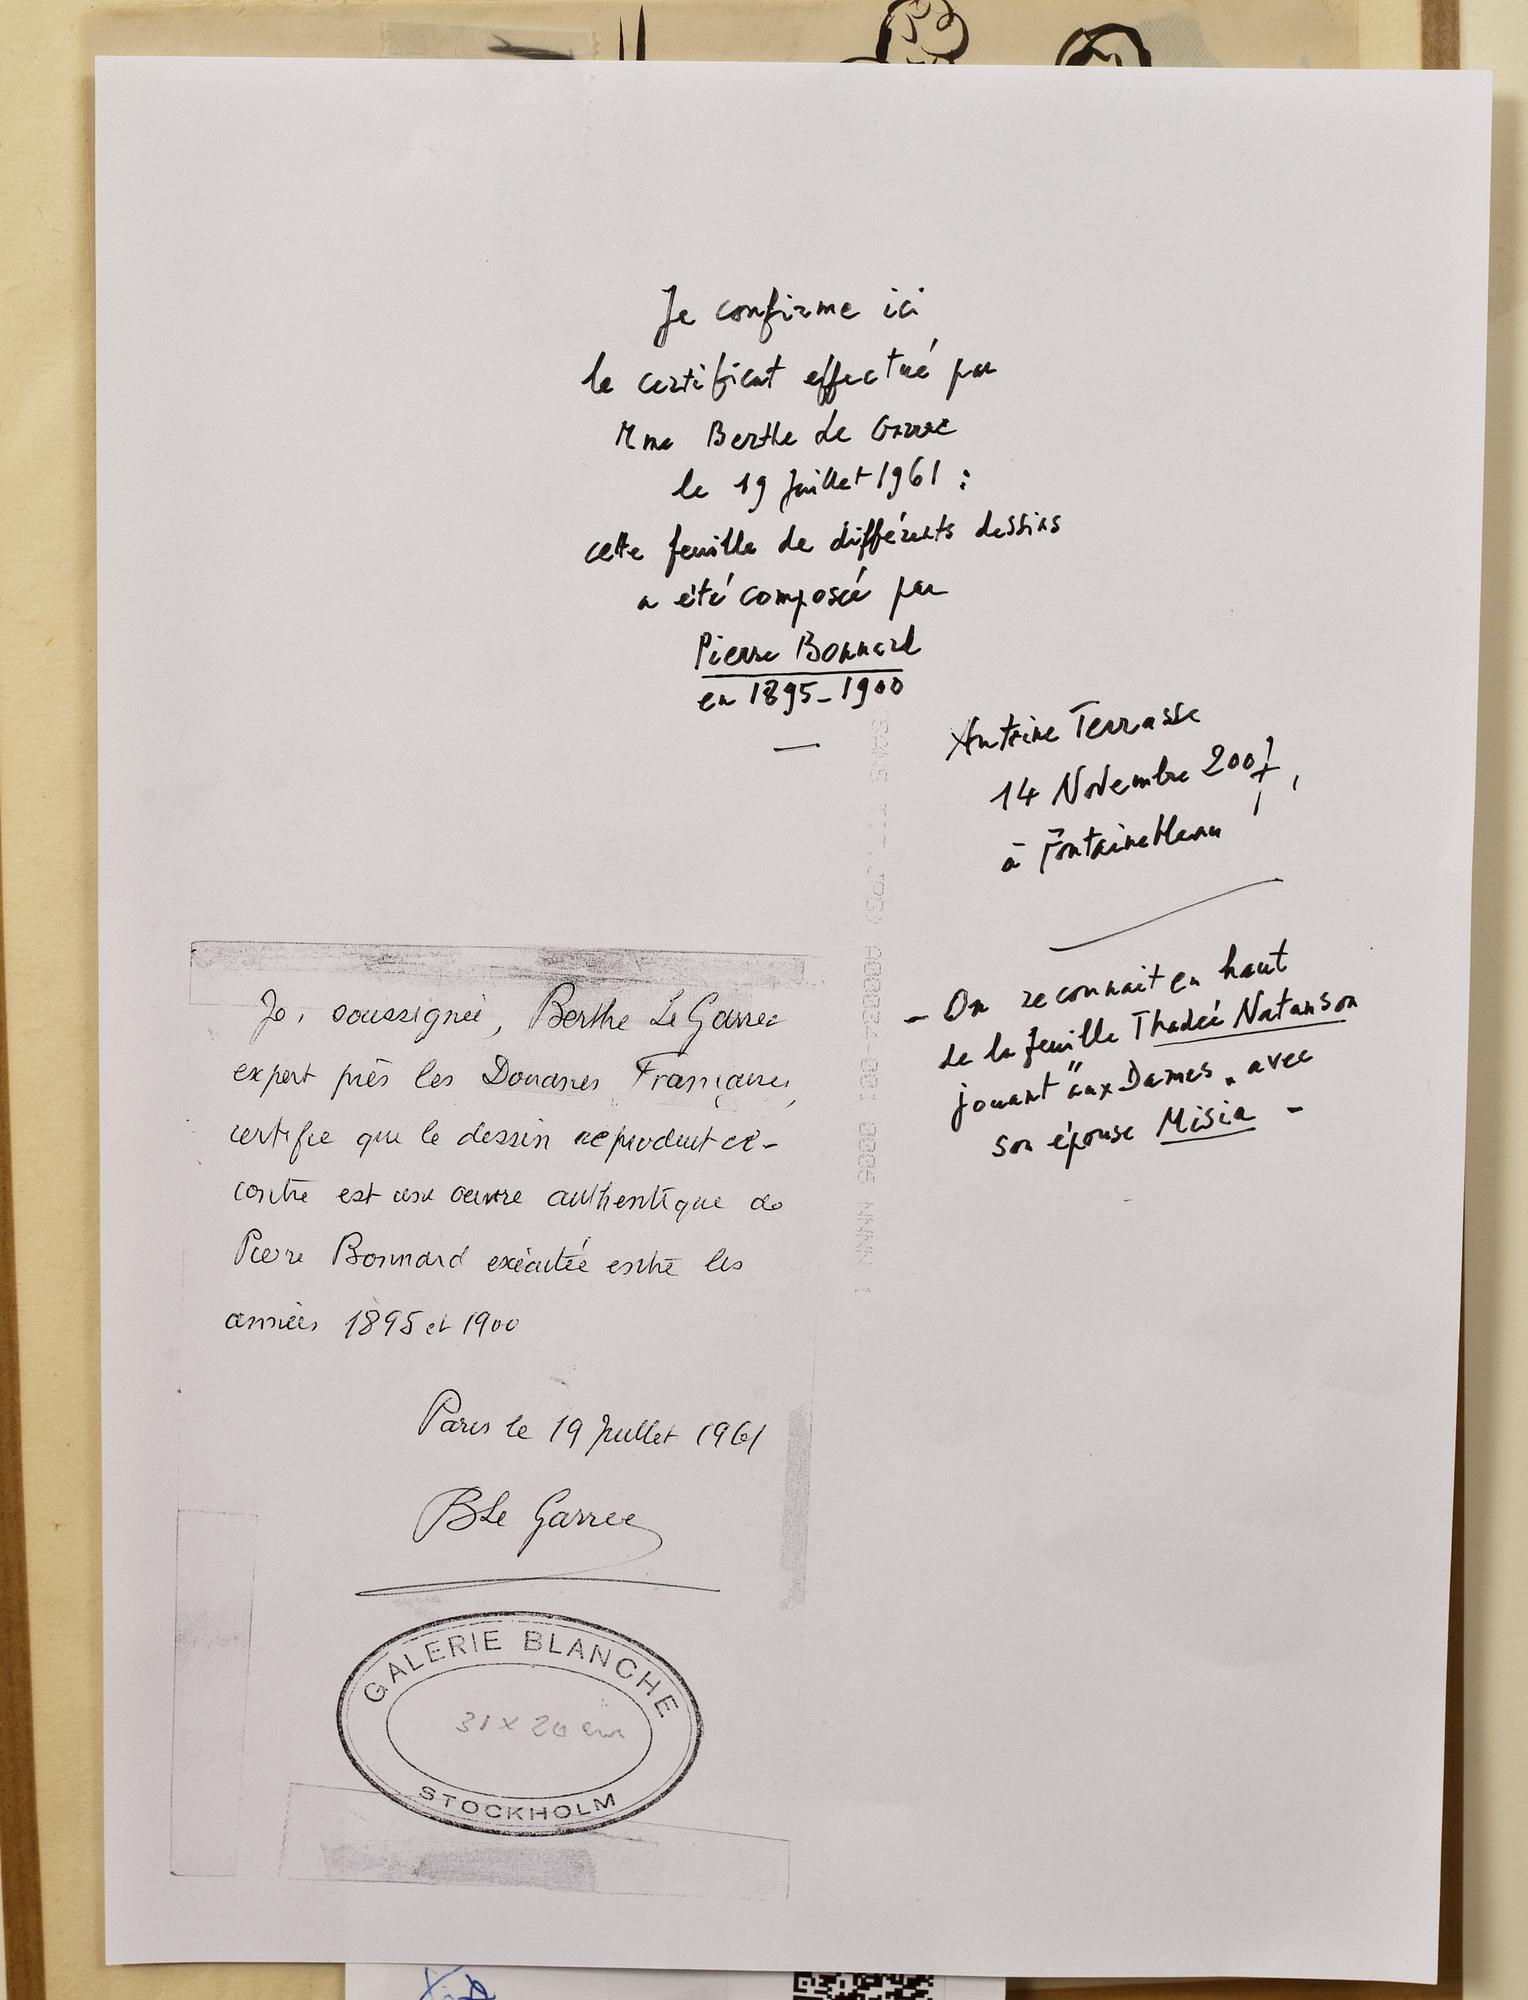 Je confirme ici
le certificat effectué par
Mme Berthe de Garrec
le 19 Juillet 1961 :
cette feuille de différents dessins
a été composée par
Pierre Bonnard
en 1895-1900
Antoine Terrasse
14 Novembre 2007,
à Fontainebleau
- On reconnait en haut
de la feuille Thadée Natanson
jouant "aux Dames" avec
son épouse Misia -
Je, soussignée, Berthe Le Garrec
expert près les Douanes Françaises,
certifie que le dessin reproduit ci-
contre est une œuvre authentique de
Pierre Bonnard exécutée entre les
années 1895 et 1900
Paris le 19 Juillet 1961
BLe Garrec
GALERIE BLANCHE
31 x 20 cm
STOCKHOLM